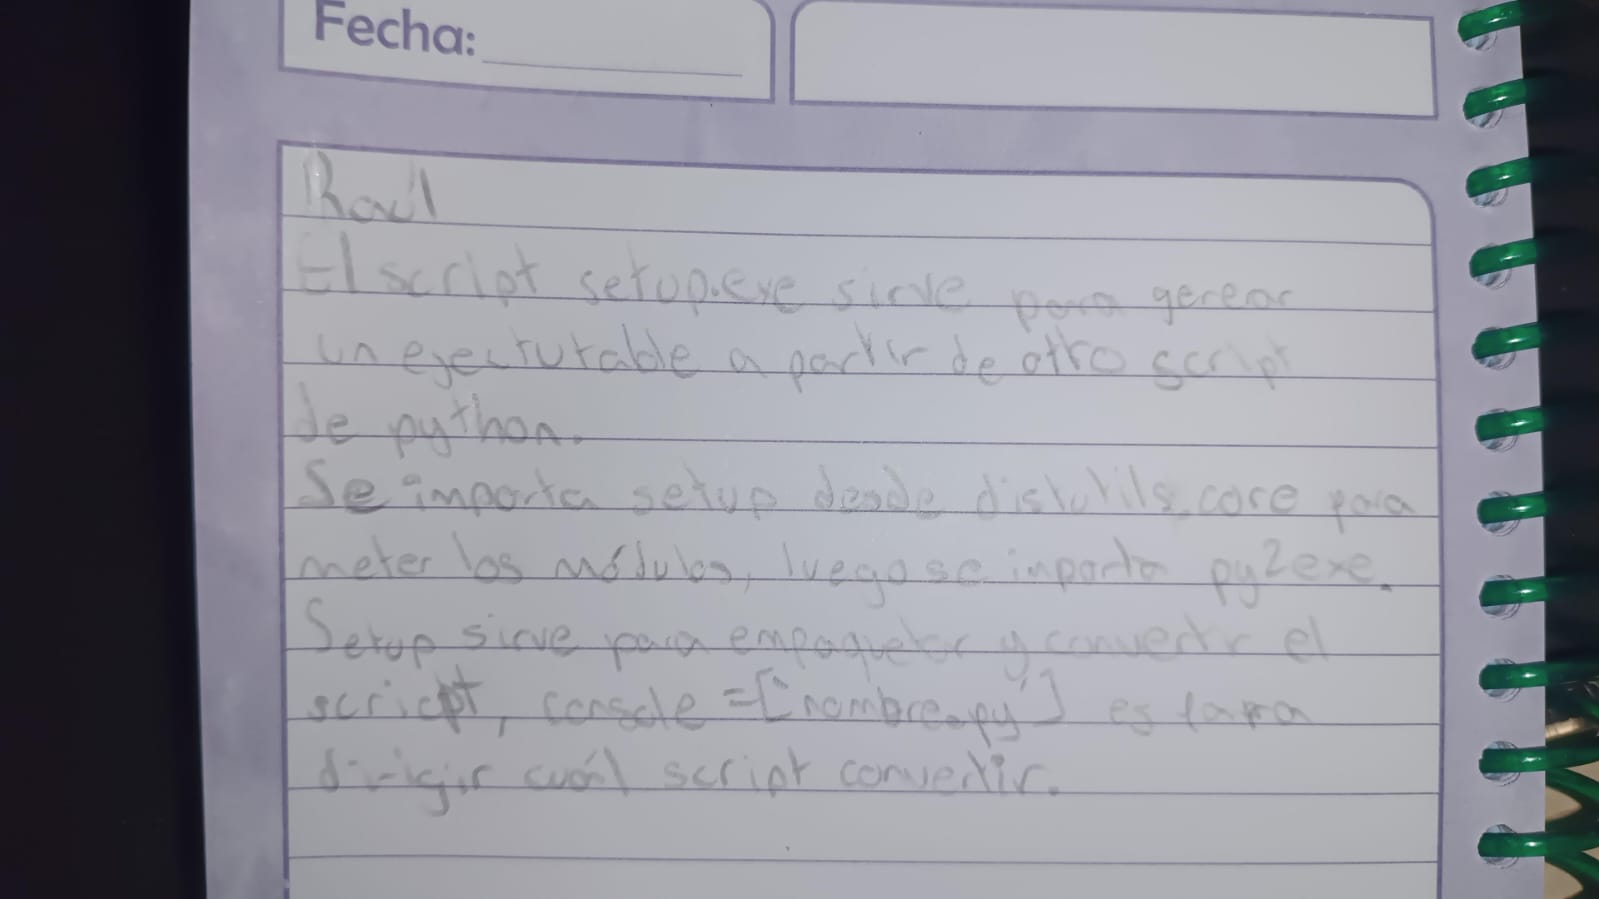 Fecha:
Raúl
El script setup.exe sirve para gerear
un ejecturable a partir de otro script
de python.
Se importa setup desde distutils.core para
meter los módulos, luego se importa py2exe.
Setup sirve para empaquetar y convertir el
script, console =['nombre.py'] es para
dirigir cuál script convertir.